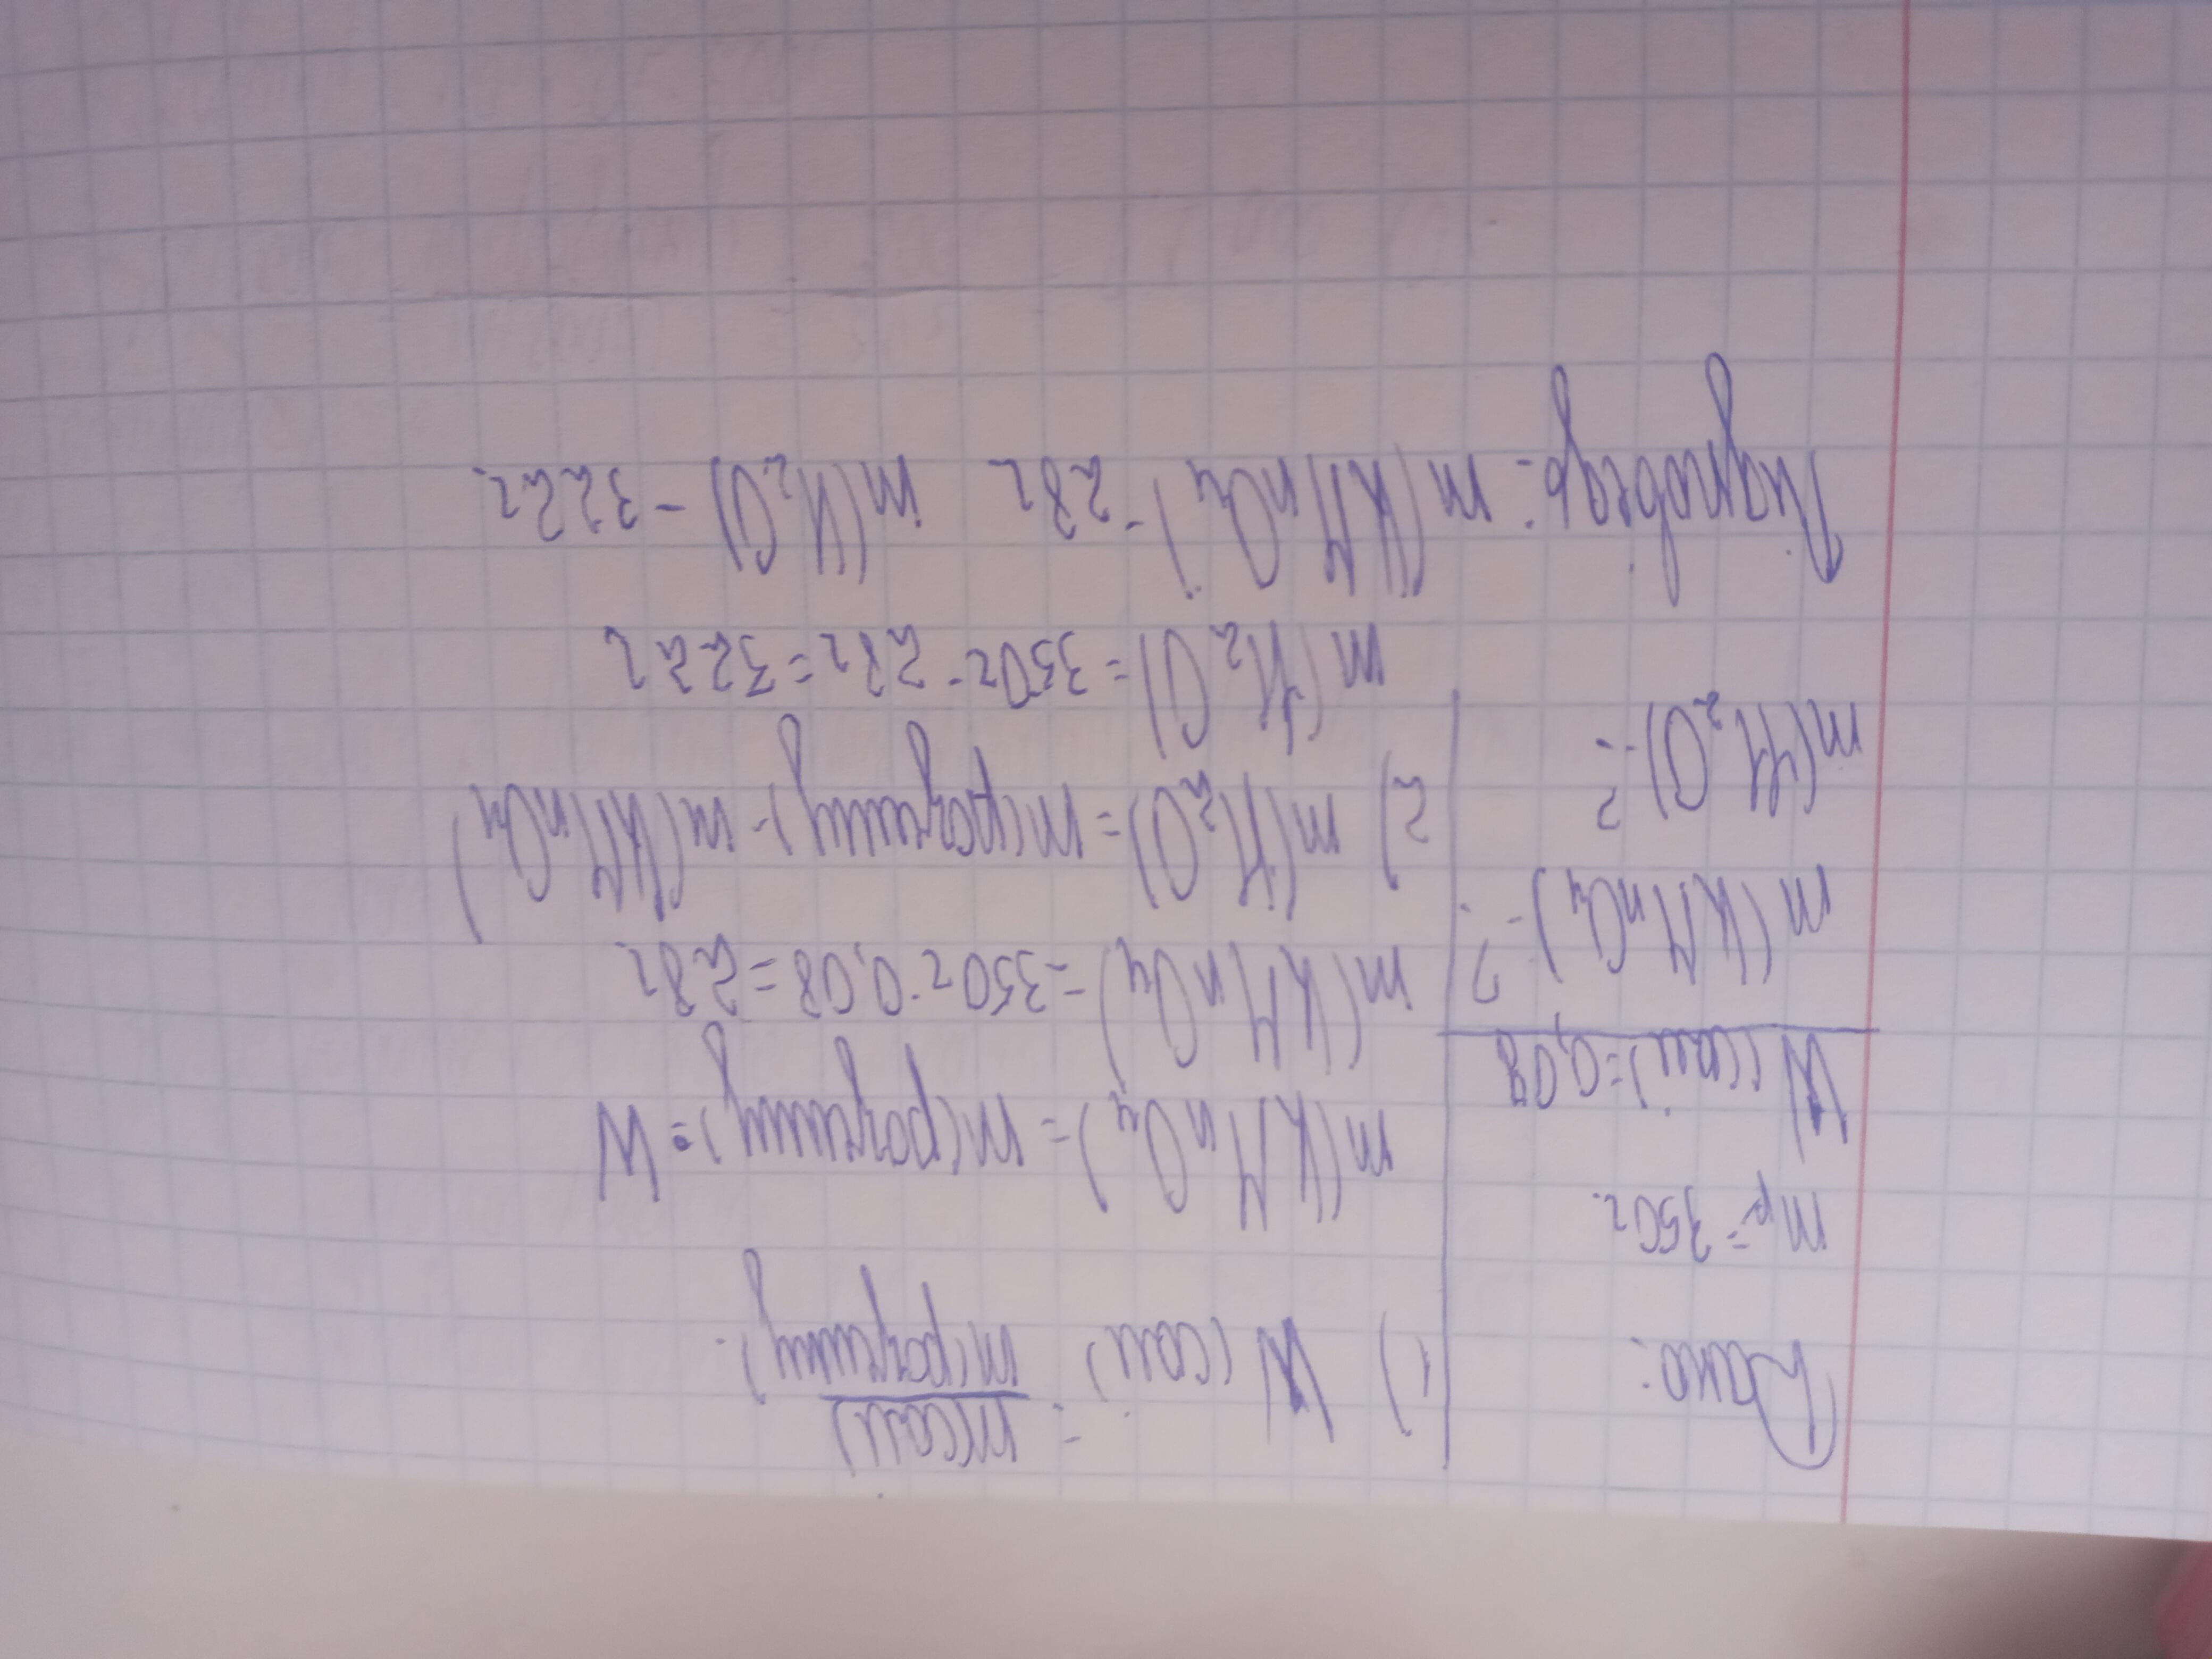 Дано:
mр = 350г.
W(солі) = 0,08
m(KMnO₄) - ?
m(H₂O) - ?
1) W(солі) = m(солі) / m(розчину)
m(KMnO₄) = m(розчину) · W
m(KMnO₄) = 350г · 0,08 = 28г
2) m(H₂O) = m(розчину) - m(KMnO₄)
m(H₂O) = 350г - 28г = 322г
m(KMnO₄) - 28г m(H₂O) - 322г